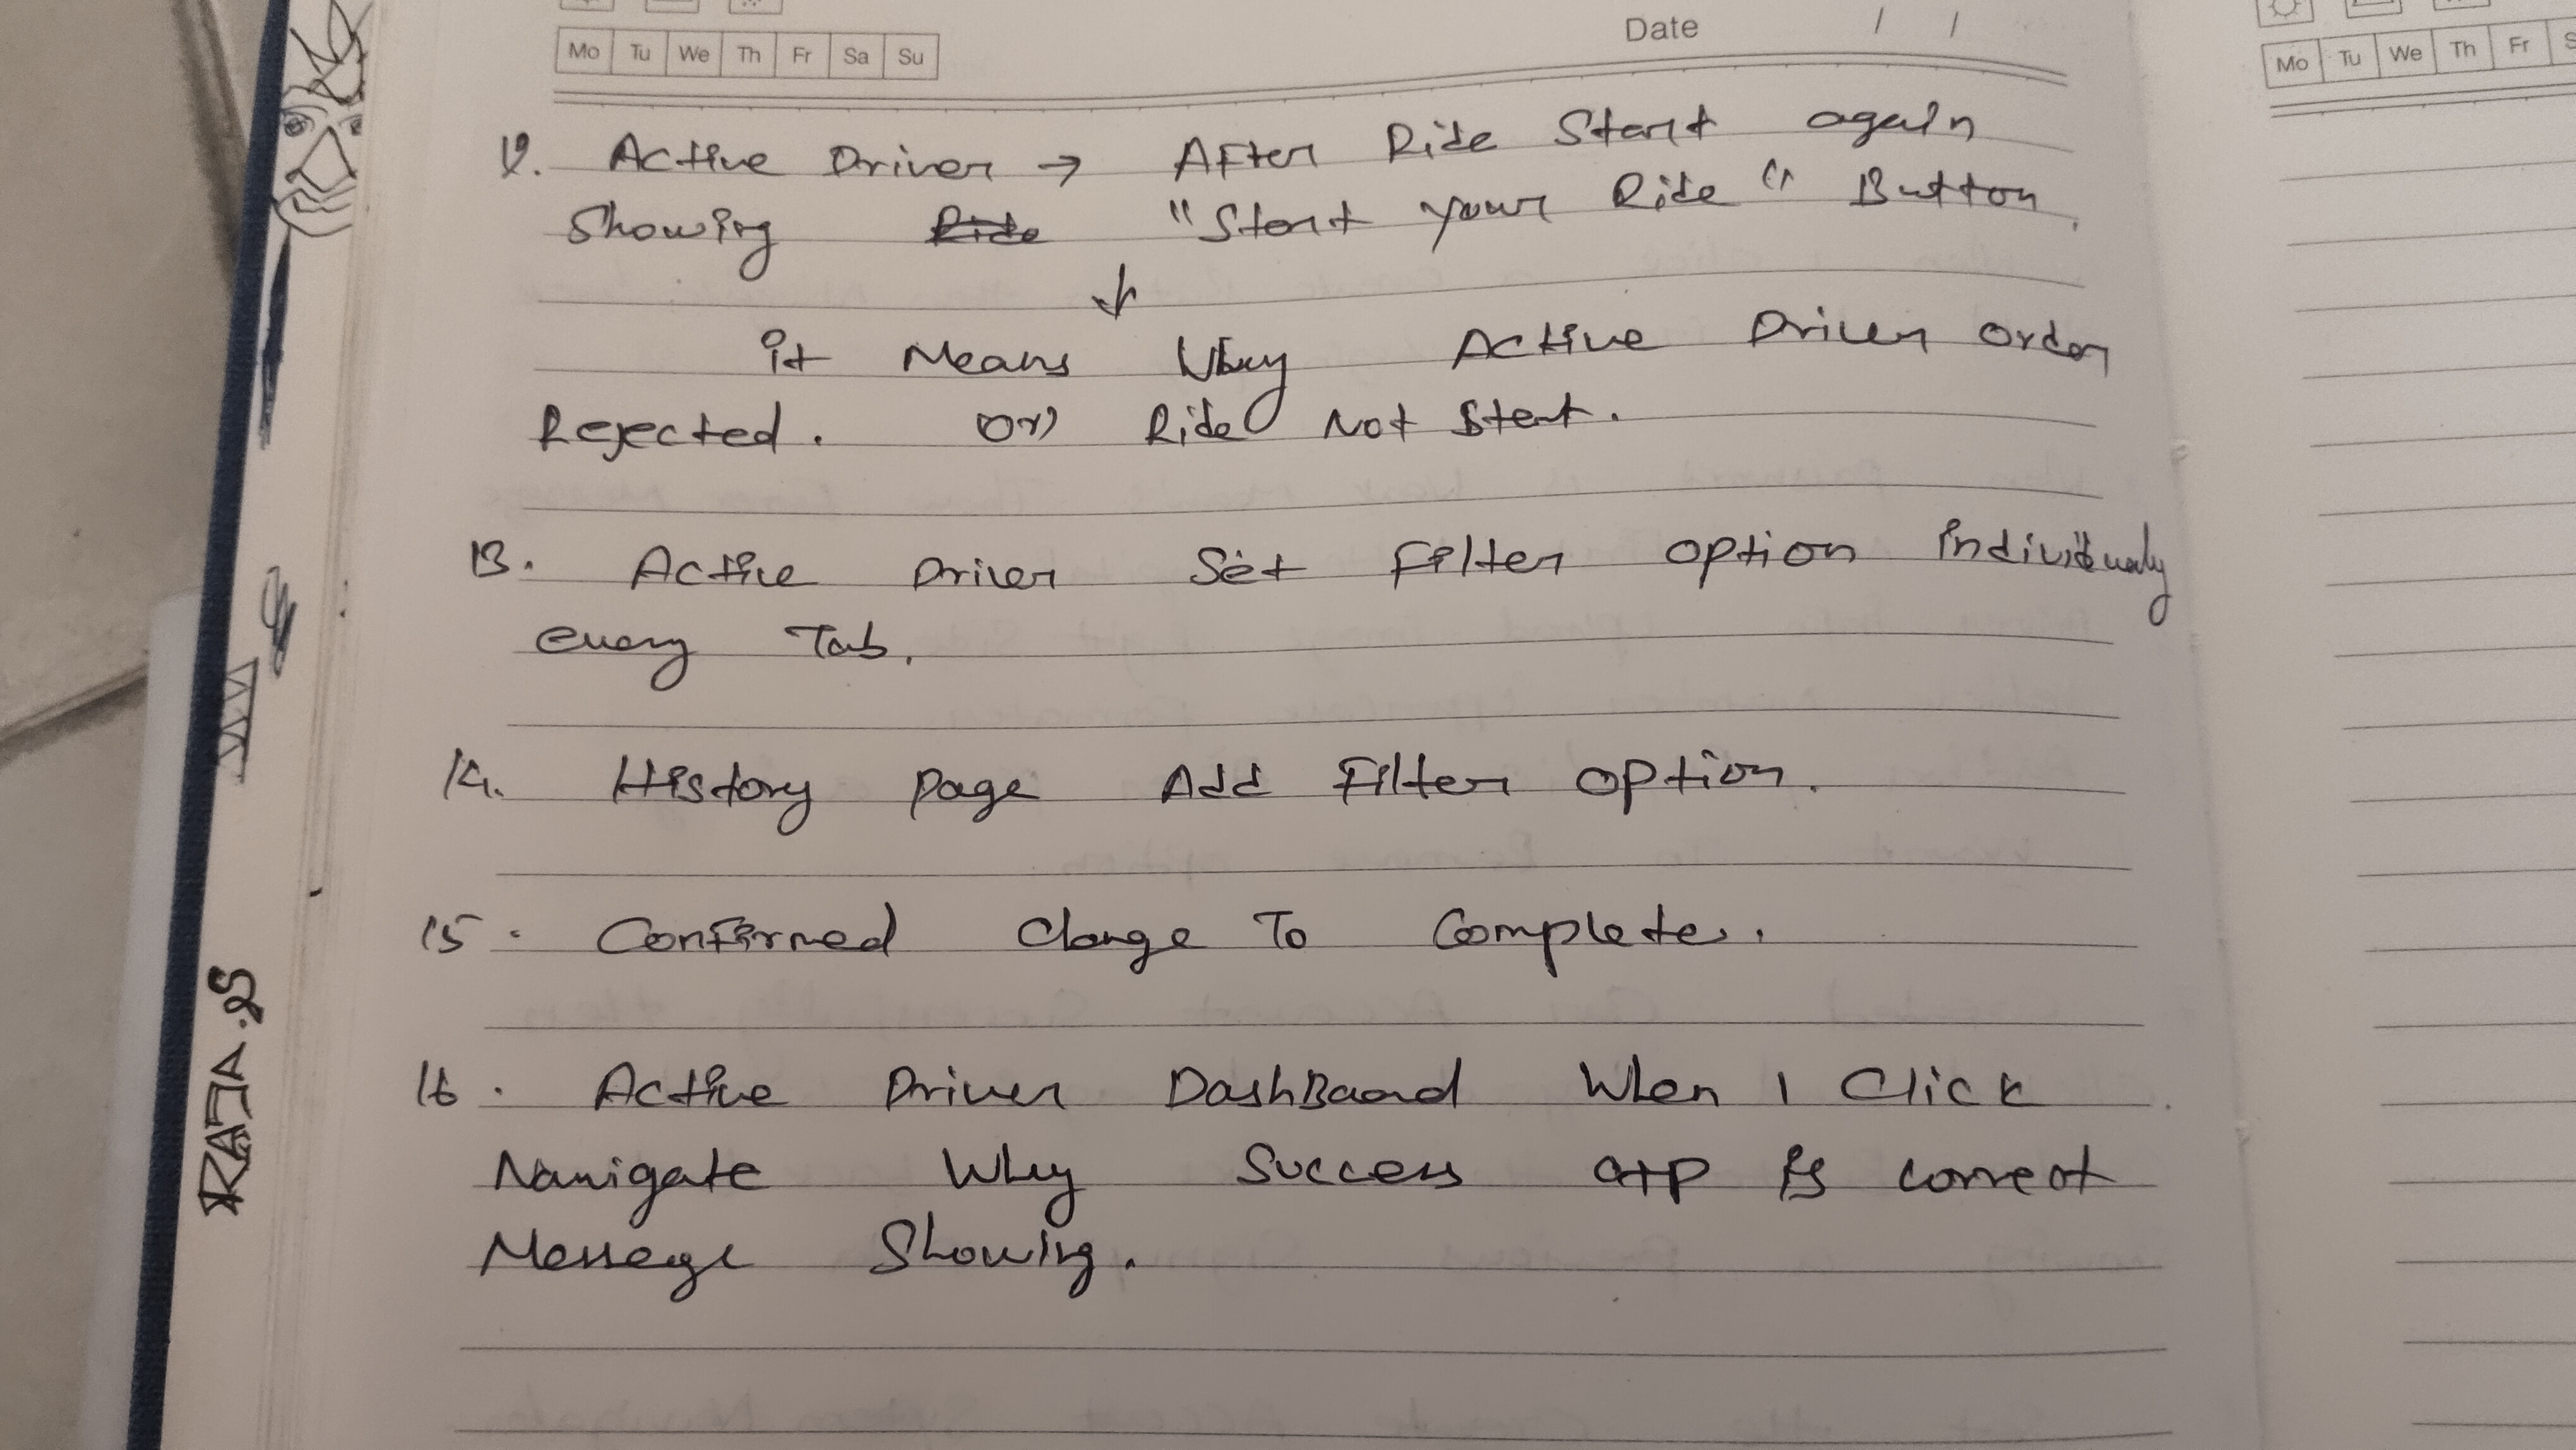 Date / /
Mo Tu We Th Fr Sa Su
Mo Tu We Th Fr S
12. Active Driver → After Ride Start again
Showing Ride "Start your Ride" Button.
↓
it Means Why Active Driver order
Rejected. or) Ride Not Start.
13. Active Driver Set Filter option individually
every Tab.
14. History page Add Filter option.
15. Confirmed Change To Complete.
16. Active Driver DashBoard When I Click
Navigate Why Success OTP is correct
Message Showing.
RAJA.S